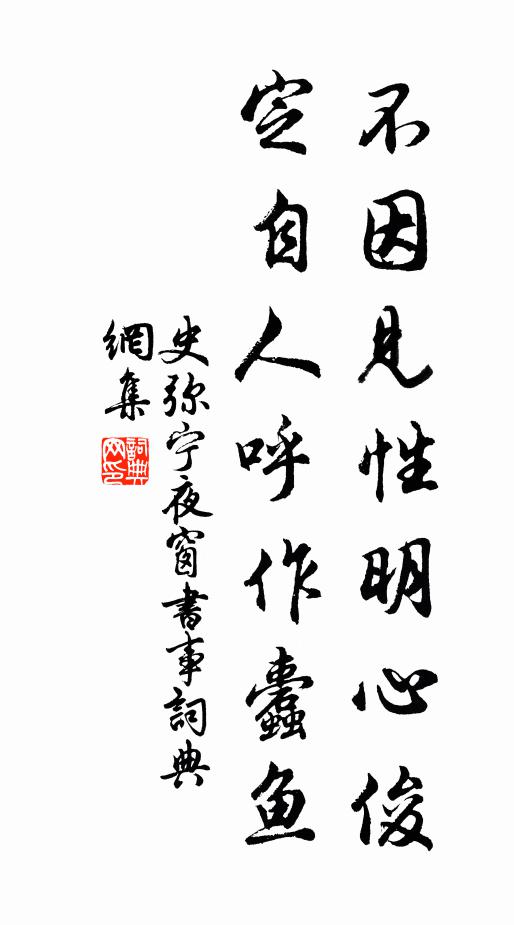 不因見性明心俊
定自人呼作蠹鱼
史弥宁夜窗書事詞典
網集
詞典
网印